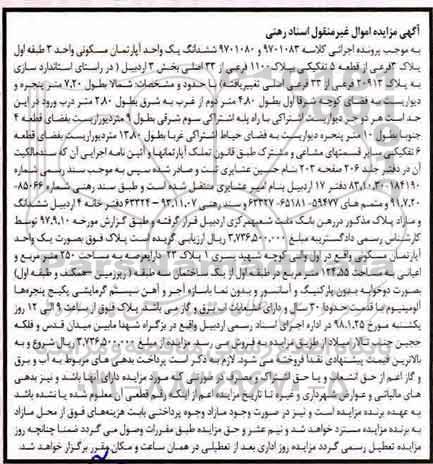 آگهی مزایده اموال غیرمنقول اسناد رهنی
به موجب پرونده اجرائی کلاسه ۹۷۰۱۰۸۳ و ۹۷۰۱۰۸۰ ششدانگ یک واحد آپارتمان مسکونی واحد ۳ طبقه اول
پلاک ۳ فرعی از قطعه ۵ تفکیکی پلاک ۱۱۰۰ فرعی از ۳۳ اصلی بخش ۳ اردبیل ( در راستای استاندارد سازی
به پلاک ۲۰۹۱۳ فرعی از ۳۳ اصلی تغییر یافته) با حدود و مشخصات: شمالا بطول ۷.۲۰ متر پنجره و
دیواریست به فضای کوچه شرقا اول بطول ۴.۸۰ متر دوم از غرب به شرق بطول ۲.۸۰ متر درب ورود در این
حد است هر دو جزء دیواریست اشتراکی با راه پله اشتراکی سوم شرقی بطول ۹ متر دیواریست بفضای قطعه ۴
جنوبا بطول ۱۰ متر پنجره دیواریست به فضای حیاط اشتراکی غربا بطول ۱۳.۸۰ متر دیواریست بفضای قطعه
۶ تفکیکی سایر قسمتهای مشاعی و مشترک طبق قانون تملک آپارتمانها و آئین نامه اجرایی آن که سند مالکیت
آن در دفتر جلد ۲۰۶ صفحه ۲۰۳ بنام حسین عشایری ثبت و صادر شده سپس به موجب سند رسمی شماره
۱۸۴۱۹۰-۸۳.۱۰.۳۰ دفتر ۱۷ اردبیل بنام امیر عشایری منتقل شده است و طبق سند رهنی شماره ۸۵۰۶۶-
۹۱.۷.۲۰ و متمم های ۵۹۴۷۷- ۶۵۱۸۱- ۶۳۳۲۷ و سند رهنی ۹۲.۱۱.۰۷ – ۶۳۳۲۴ دفتر خانه ۴ اردبیل ششدانگ
و مازاد پلاک مذکور در رهن بانک ملت شعبه مرکزی اردبیل قرار گرفته و طبق گزارش مورخه ۹۷.۹.۱۰ توسط
کارشناس رسمی دادگستری به مبلغ ۳,۷۳۶,۵۰۰,۰۰۰ ریال ارزیابی گردیده است پلاک فوق بصورت یک واحد
آپارتمان مسکونی واقع در اول والی کوچه شهید بسری ۱ پلاک ۲۳ دارای عرصه به مساحت ۲۵۰ متر مربع و
اعیانی به مساحت ۱۲۴.۵۵ متر مربع در طبقه اول از یک ساختمان سه طبقه (زیرزمین – همکف و طبقه اول)
بصورت دوخوابه بدون پارکینگ و آسانسور و بدون نما با سازه آجر و آهن سیستم گرمایشی پکیج پنجره‌ها
آلومینیوم با قدمت حدودا ۳۰ سال و دارای انشعابات آب برق و گاز می باشد. پلاک فوق از ساعت ۹ الی ۱۲ روز
یکشنبه مورخ ۹۸.۱.۲۵ در اداره اجرای اسناد رسمی اردبیل واقع در بزرگراه شهدا مابین میدان قدس و فلکه
ججین جنب تالار میلاد از طریق مزایده به فروش می رسد. مزایده از مبلغ ۳,۷۳۶,۵۰۰,۰۰۰ ریال شروع و به
بالاترین قیمت پیشنهادی نقدا فروخته می شود. لازم به ذکر است پرداخت بدهی های مربوط به آب و برق
و گاز اعم از حق انشعاب و یا حق اشتراک و مصرف در صورتی که مورد مزایده دارای آنها باشد و نیز بدهی
های مالیاتی و عوارض شهرداری و غیره تا تاریخ مزایده اعم از اینکه رقم قطعی آن معلوم شده یا نشده باشد
به عهده برنده مزایده است و نیز در صورت وجود مازاد وجوه پرداختی بابت هزینه‌های فوق از محل مازاد
به برنده مزایده مسترد خواهد شد و نیم عشر و حق مزایده طبق مقررات وصول می گردد ضمنا چنانچه روز
مزایده تعطیل رسمی گردد مزایده روز اداری بعد از تعطیلی در همان ساعت و مکان مقرر برگزار خواهد شد.